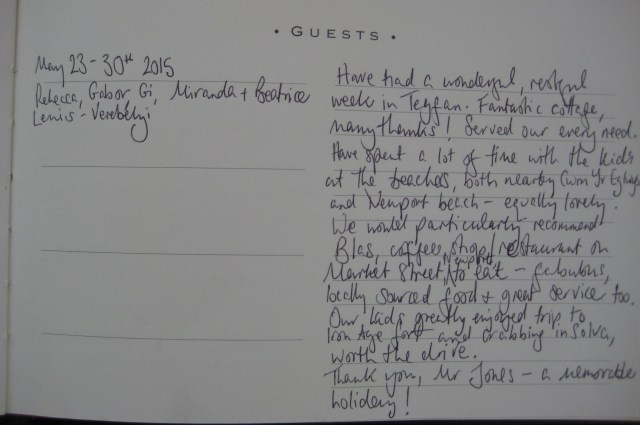 • GUESTS •
May 23-30th 2015
Rebecca, Gabor Gi, Miranda + Beatrice
Lewis-Verebélyi
Have had a wonderful, restful
week in Tegfan. Fantastic cottage,
many thanks! Served our every need.
Have spent a lot of time with the kids
at the beaches, both nearby Cwm Yr Eglwys
and Newport beach - equally lovely.
We would particularly recommend
Blas, coffee shop/restaurant on
Market Street, Newport to eat - fabulous,
locally sourced food + great service too.
Our kids greatly enjoyed trip to
Iron Age fort and crabbing in Solva,
worth the drive.
Thank you, Mr Jones - a memorable
holiday!